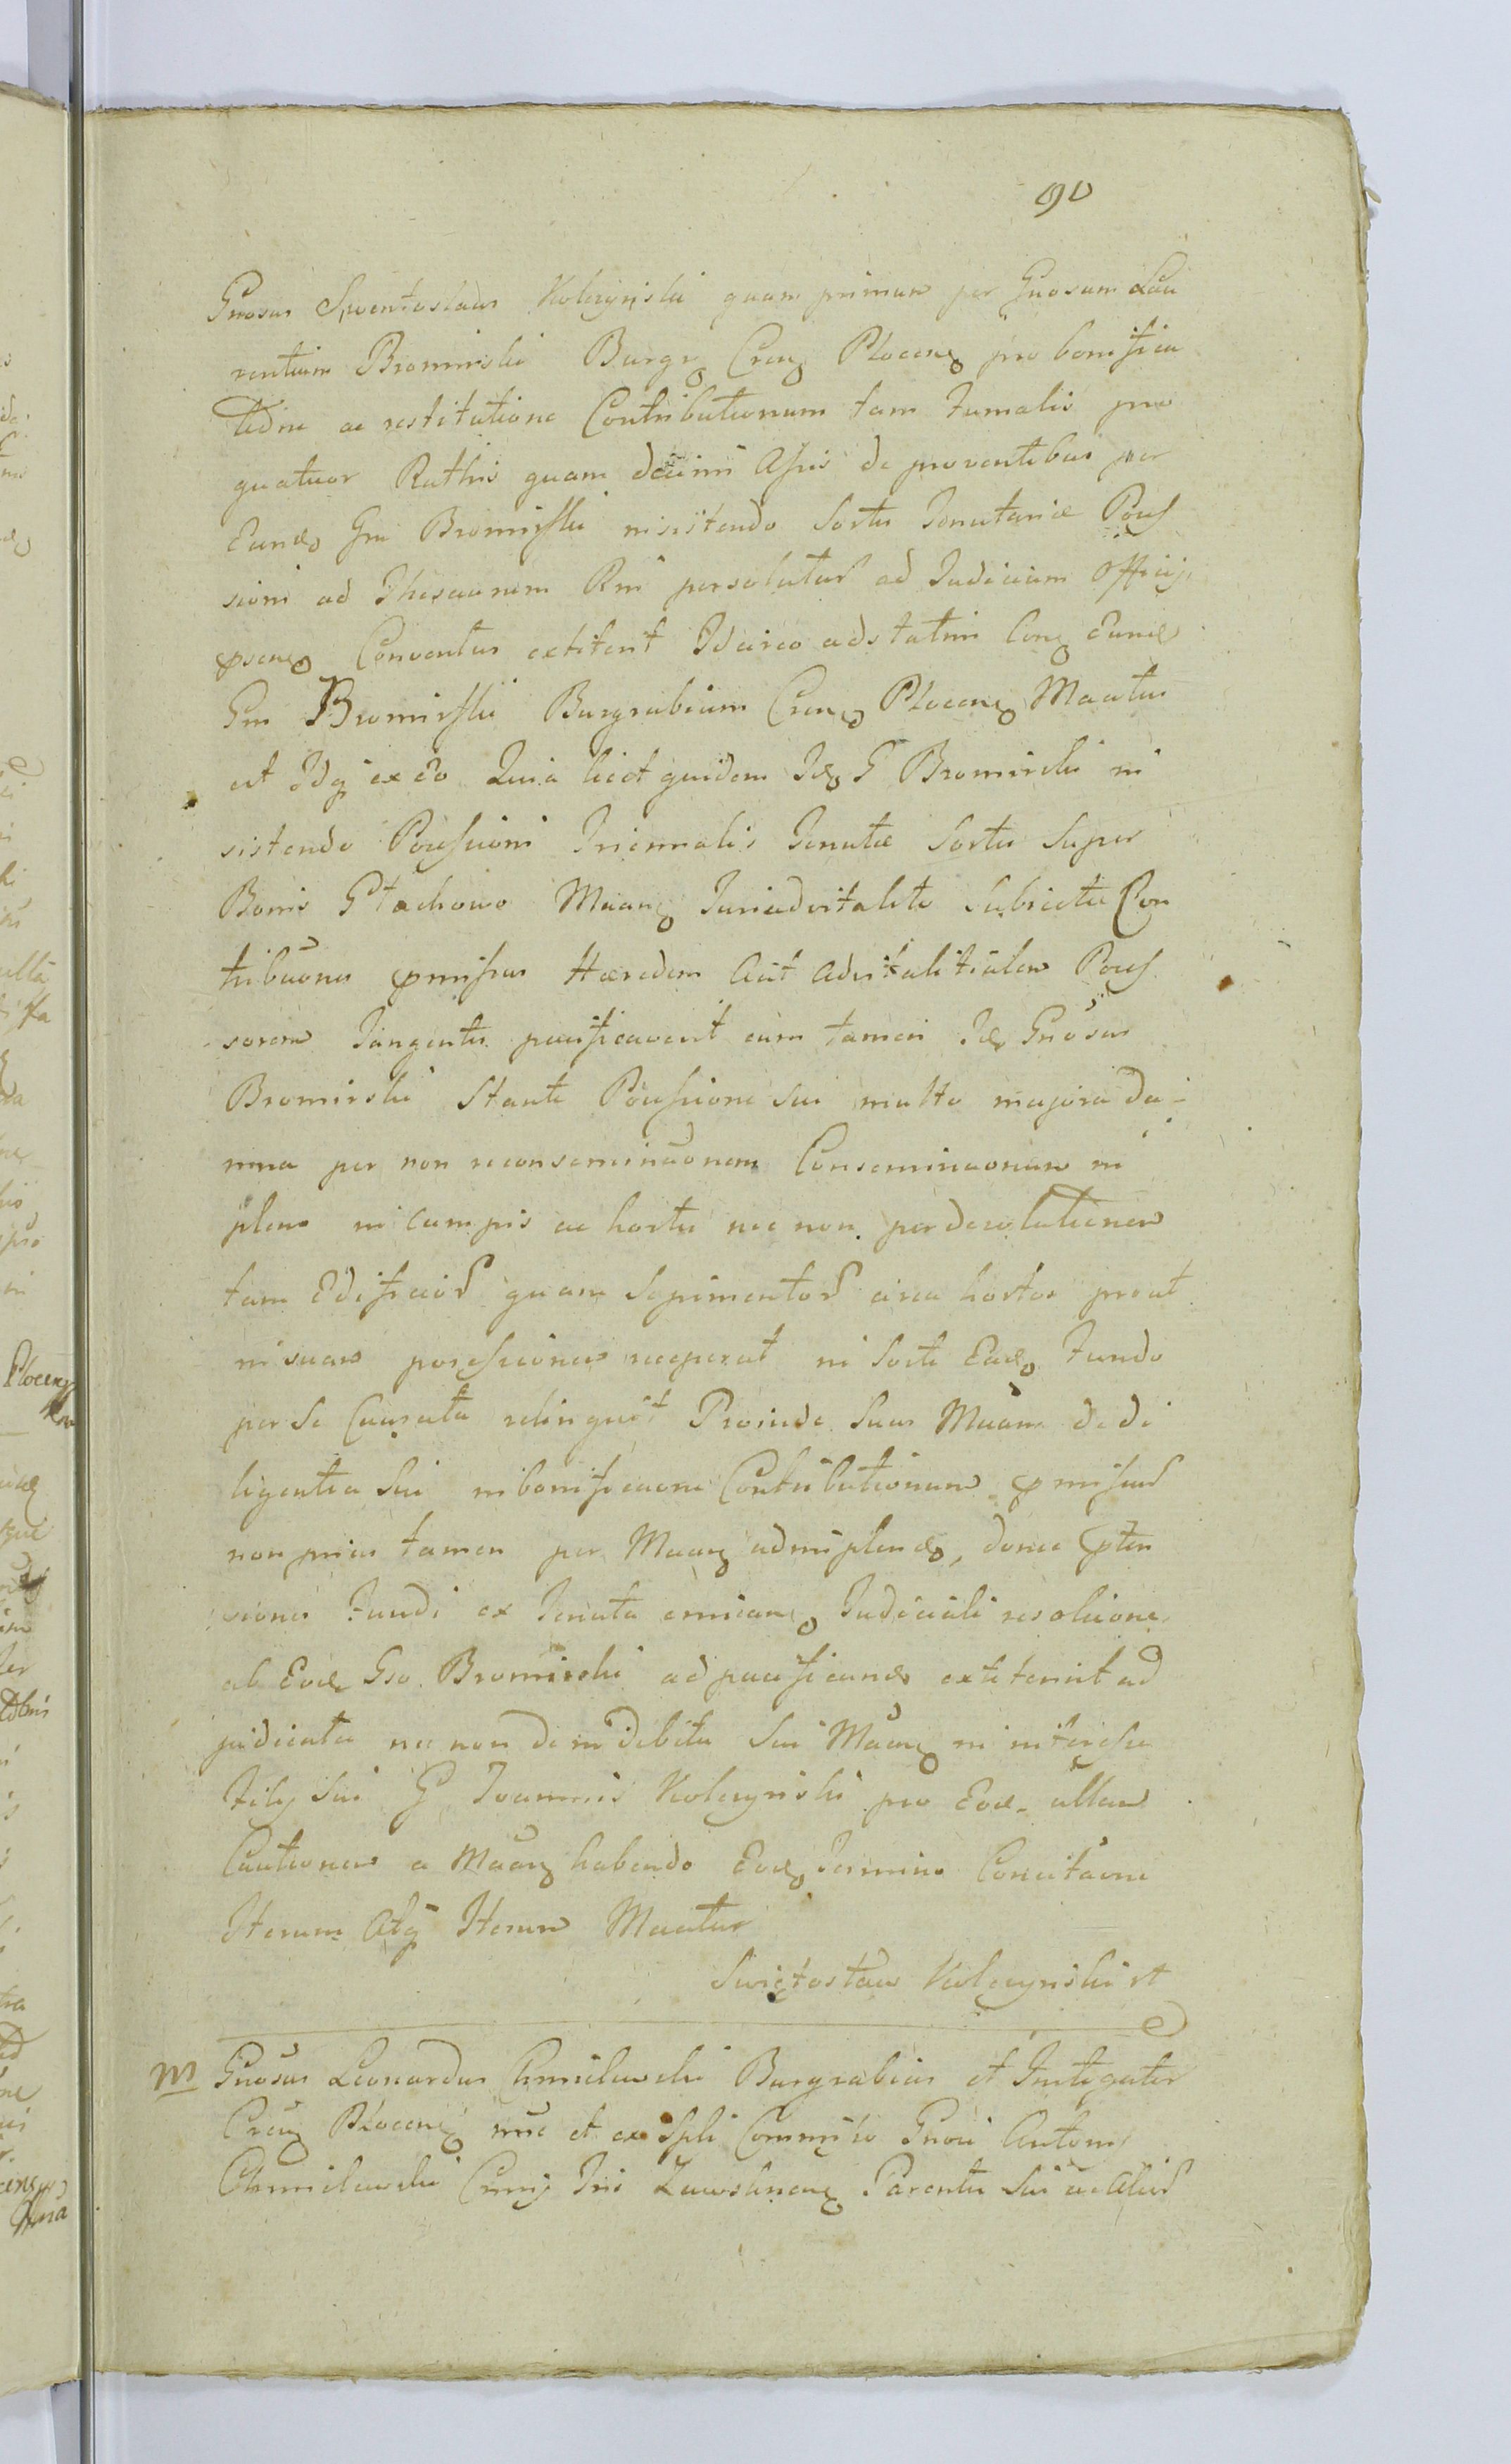 90
Gnosus Swentoslaus Kolczynski quam primum per Gnosum Lau
rentium Bromirski Burgr Cren Plocen pro bonifica
tione ac restitutione Contributionum tam Fumalis pro
quatuor Rathis quam decimi Assis de proventibus per
Eund Gm Bromirski insistendo Sortis Tenutariæ Poss
sioni ad Thesaurum Rni persolutar ad Judicium Officij
psens Conventus extiterit Idcirco adstatim Con Eund
Gm Bromirski Burgrabium Cren Plocen Maatus
est Idq ex eo Quia licet quidem Id G Bromirski in
sistendo Possesioni Triennalis Tenutæ Sortis Super
Bonis Głachowo Maan Juri advitalit Subiectæ Con
tribuones pmissas Hæredem aut advitalitialem Poss
sorem Tangentes pacificaverit cum tamen Id Gnosus
Bromirski Stante Possessione sui multo majora da-
mna per non reconseminaonem Conseminaonum in
pleno in campis ac hortis nec non per desolationem
tam Edificior quam Sepimentor circa hortos prout
in suam possessionem receperat in Sorte Ead Fundo
per Se Causata relinquit Proinde Suus Maans de di
ligentia Sui in bonificaone Contributionum pmissar
non prius tamen per Maan adimplend, donec ptën
siones Fundi ex Tenuta emican Judiciali resoluone
ab Eod Gso Bromirski ad pacificand extiterint ad
judicatæ nec non de indebita Sui Maan in interesse
Filij Sui G Joannis Kolczynski pro Eod ullam
Cautionem a Maan habendo Eod Termino Concitaone
Iterum Atq Iterum Maatur
Swiętosław Kolczynski st
M Gnosus Leonardus Chmielewski Burgrabius et Instigator
Cren Plocen nne et ex spli Commisso Gnosi Antoni
Chmielewski Crnij Tris Zawskren Parentis Sui ac alior